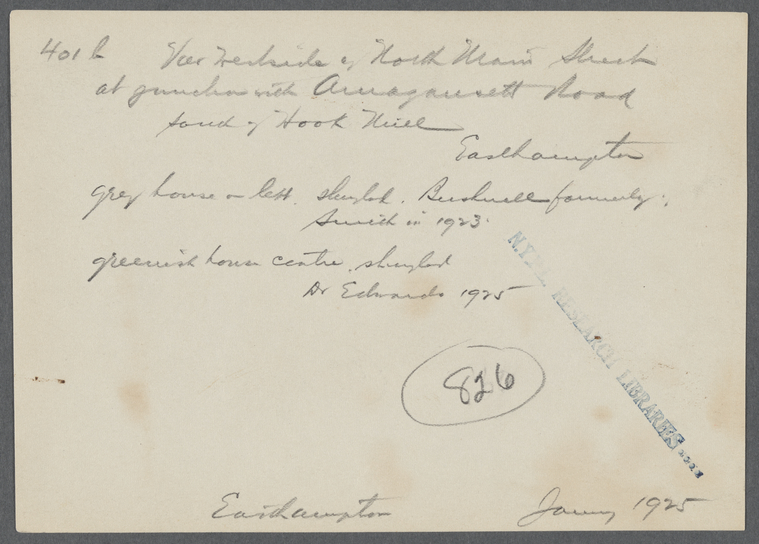 401 b westside of North Main Street
at junction with Amagansett Road
of Hook Mill
Easthampton
grey house on left. shingled. Bushnell formerly.
Smith in 1923.
greenish house centre, shingled
Dr Edwards 1925
N.Y.P.L. RESEARCH LIBRARIES
826
Easthampton 1925